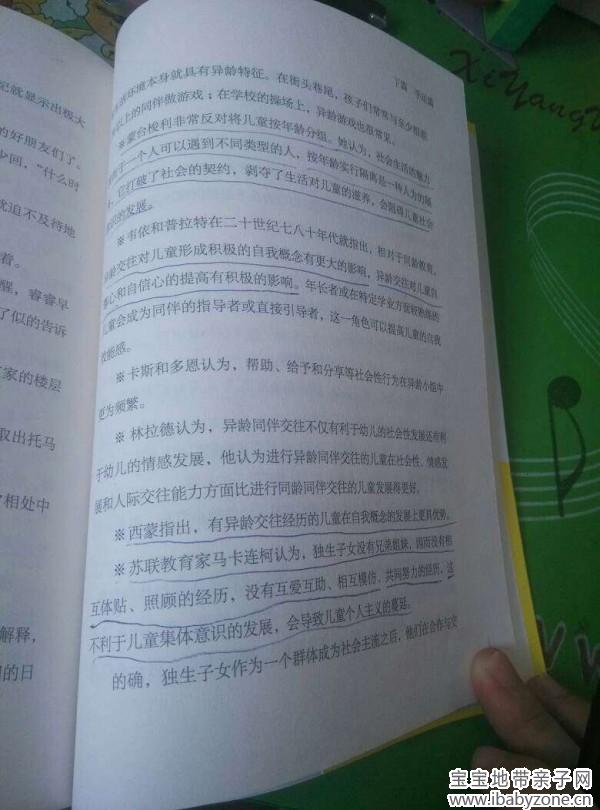 记就显示出极大
的好朋友们了。
少回，“什么时
就迫不及待地
着。
醒，睿睿早
了似的告诉
家的楼层
取出托马
相处中
解释，
的日
下篇
环境本身就具有异龄特征。在街头巷尾，孩子们常常与至少相差
以上的同伴做游戏；在学校的操场上，异龄游戏也很常见。
※蒙台梭利非常反对将儿童按年龄分组。她认为，社会生活的魅力
于一个人可以遇到不同类型的人，按年龄实行隔离是一种人为的隔
，它打破了社会的契约，剥夺了生活对儿童的滋养，会阻碍儿童社会
识的发展。
※韦依和普拉特在二十世纪七八十年代就指出，相对于同龄教育，
龄交往对儿童形成积极的自我概念有更大的影响，异龄交往对儿童自
心和自信心的提高有积极的影响。年长者或在特定学业方面较熟练的
儿童会成为同伴的指导者或直接引导者，这一角色可以提高儿童的自我
效能感。
※卡斯和多恩认为，帮助、给予和分享等社会性行为在异龄小组中
更为频繁。
※林拉德认为，异龄同伴交往不仅有利于幼儿的社会性发展还有利
于幼儿的情感发展，他认为进行异龄同伴交往的儿童在社会性、情感发
展和人际交往能力方面比进行同龄同伴交往的儿童发展得更好。
※西蒙指出，有异龄交往经历的儿童在自我概念的发展上更具优势。
※苏联教育家马卡连柯认为，独生子女没有兄弟姐妹，因而没有相
互体贴、照顾的经历，没有互爱互助、相互模仿、共同努力的经历，这
不利于儿童集体意识的发展，会导致儿童个人主义的蔓延。
的确，独生子女作为一个群体成为社会主流之后，他们在合作与交
XiYangY
宝宝地带亲子网
www.ibabyzone.cn